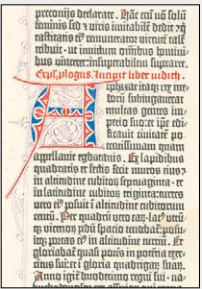 preconijs declarate. Hāc eni nō solū
feminis sed ⁊ viris imitabilē dedit: q̄
castitatis eiꝰ remunerator virtutē talē
tribuit: ut invictum omībus homini-
bus vinceret: insuperabilem superaret.
Expl. plogus. Incipit liber iudith.
Arphaxat itaq; rex me-
dorū subiugauerat
multas gentes im-
perio suo: et ipe edi-
ficauit ciuitatē po-
tentissimam quam
appellauit egbathanis. Ex lapidibus
quadratis et sectis fecit muros eius
in altitudinē cubitoꝝ septuaginta: et
in latitudinē cubitos triginta: turres
vero eiꝰ posuit ī altitudinē cubitoꝝ
centū. Per quadrū vero eaꝝ latꝰ utrū-
q; vicenoꝝ pedū spacio tendebat̄. posu-
itq; portas eiꝰ in altitudinē turriū. Et
gloriabat̄ quasi potēs in potētia exer-
citus sui: et ī gloria quadrigaꝝ suaꝝ.
Anno igit̄ duodecimo regni sui: na-